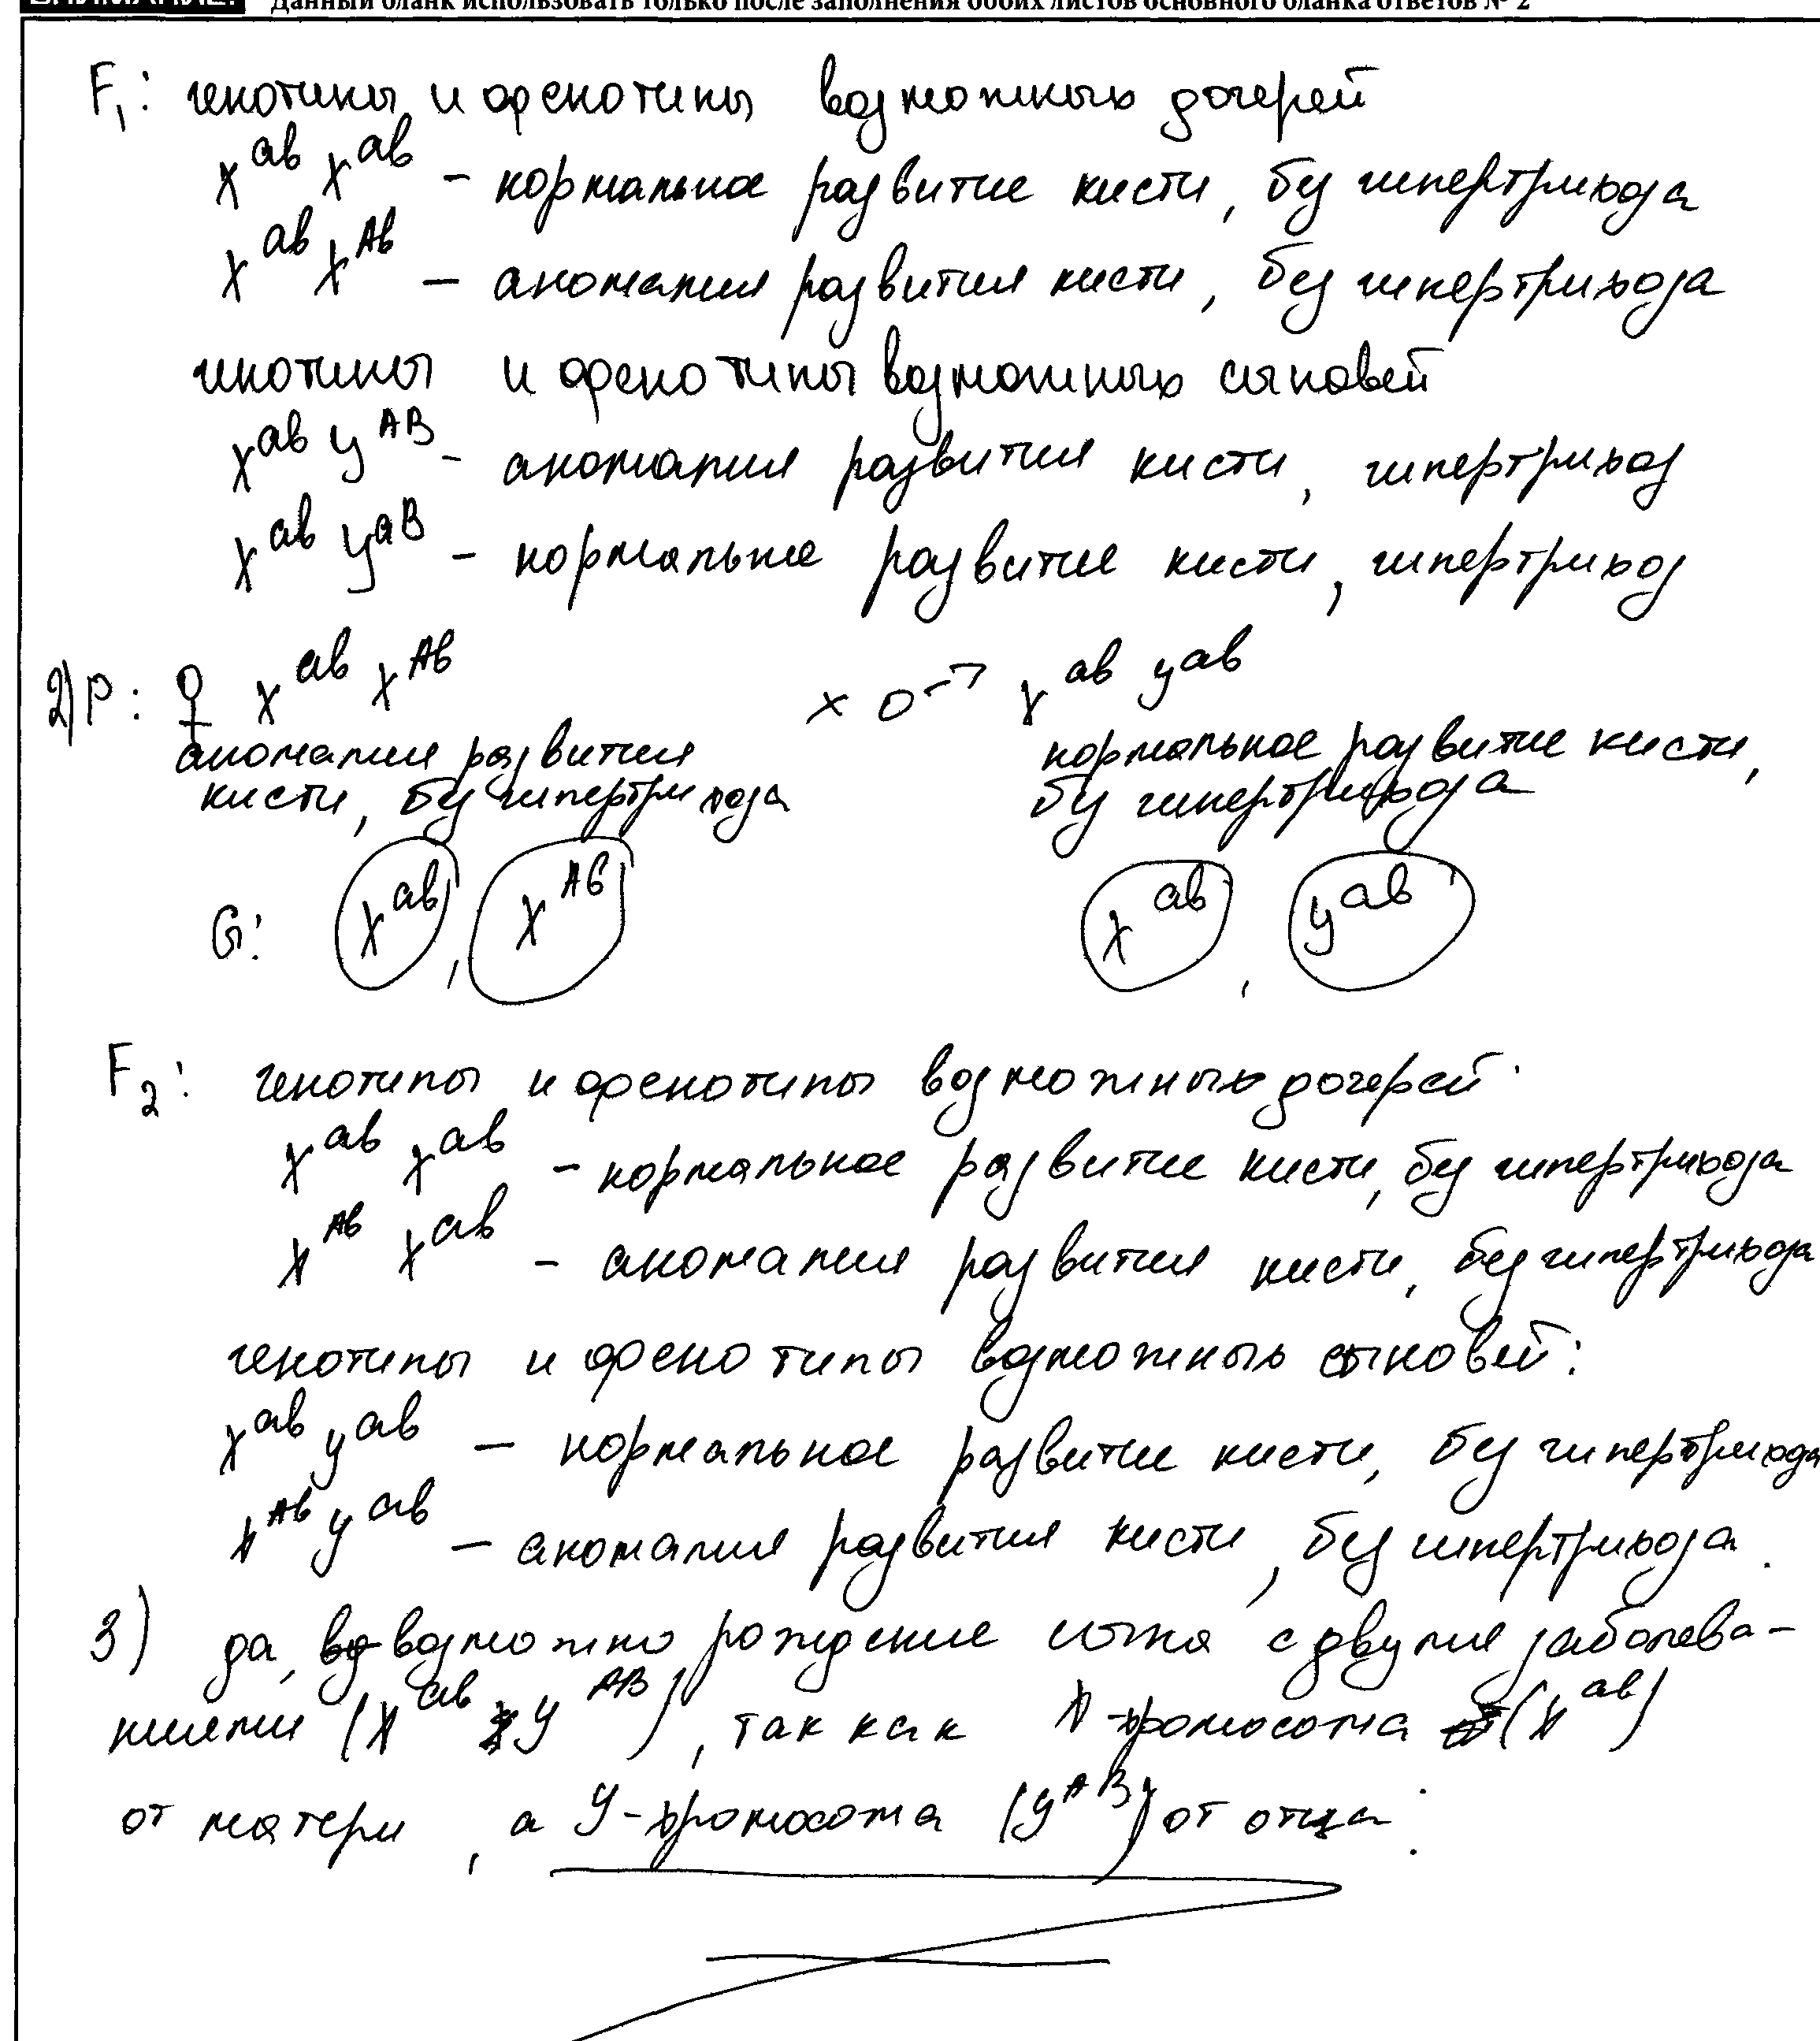 Данный бланк использовать только после заполнения обоих листов основного бланка ответов № 2
F₁: генотипы и фенотипы возможных дочерей
X^ab X^ab – нормальное развитие кисти, без гипертрихоза
X^ab X^Ab – аномалия развития кисти, без гипертрихоза
генотипы и фенотипы возможных сыновей
X^ab Y^AB – аномалия развития кисти, гипертрихоз
X^ab Y^aB – нормальное развитие кисти, гипертрихоз
2) P: ♀ X^ab X^Ab × ♂ X^ab Y^ab
аномалия развития нормальное развитие кисти,
кисти, без гипертрихоза без гипертрихоза
G: X^ab, X^Ab X^ab, Y^ab
F₂: генотипы и фенотипы возможных дочерей:
X^ab X^ab – нормальное развитие кисти, без гипертрихоза
X^Ab X^ab – аномалия развития кисти, без гипертрихоза
генотипы и фенотипы возможных сыновей:
X^ab Y^ab – нормальное развитие кисти, без гипертрихоза
X^Ab Y^ab – аномалия развития кисти, без гипертрихоза.
3) да, возможно рождение сына с двумя заболева-
ниями (X^ab Y^AB), так как X-хромосома (X^ab)
от матери, а Y-хромосома (Y^AB) от отца.